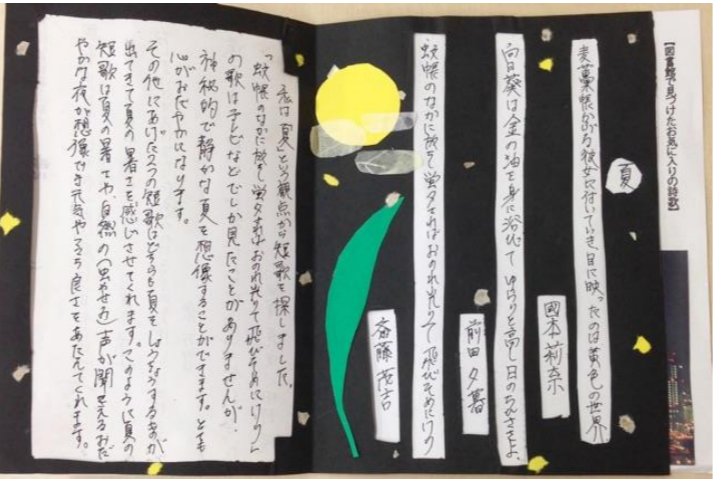 【図書館で見つけたお気に入りの詩歌】
夏
麦藁帽かぶる彼女に付いていき目に映ったのは黄色の世界
國本莉奈
向日葵は金の油を身に浴びてゆらりと高し日のちひささよ
前田夕暮
蚊帳のなかに放ちし蛍夕さればおのれ光りて飛びそめにけり
斎藤茂吉
私は「夏」という観点から短歌を探しました。
「蚊帳のなかに放ちし蛍夕さればおのれ光りて飛びそめにけり」
の歌はテレビなどでしか見たことがありませんが、
神秘的で静かな夏を想像することができます。とても
心がおだやかになります。
その他にあげた2つの短歌はどちらも夏をしょうちょうするものが
出てきて夏の暑さを感じさせてくれます。このように夏の
短歌は夏の暑さや、自然の(虫やせみ)声が聞こえるおだ
やかな夜が想像でき元気や心地良さをあたえてくれます。